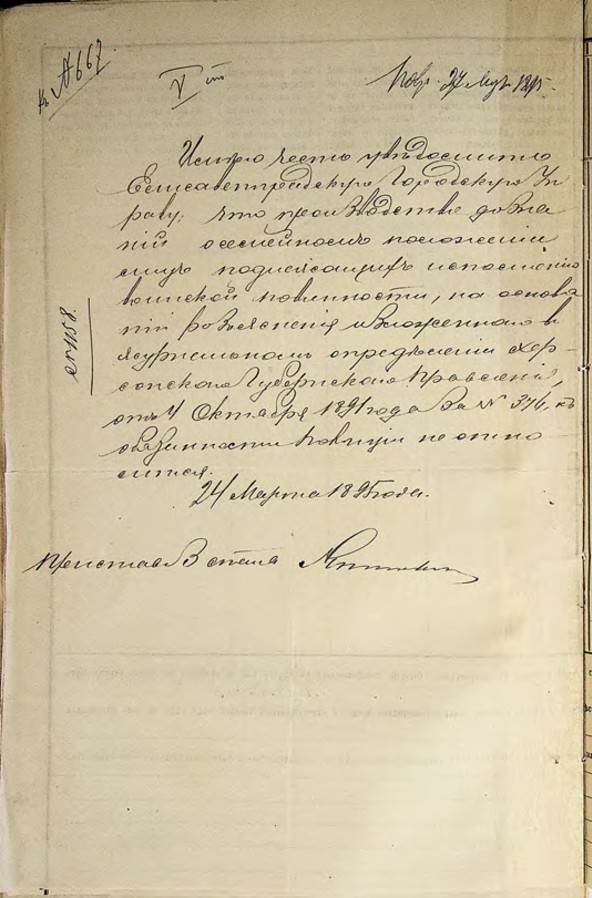 къ № 667.
V ст
27 Мар 1895.
Имѣю честь увѣдомить
Елисаветградскую Городскую Уп
раву, что производство дозна
ній о семейномъ положеніи
лицъ подлежащихъ исполненію
воинской повинности, на основа
ніи розъясненія изложеннаго в
журнальномъ опредѣленіи Хер-
сонскаго Губернскаго Правленія,
отъ 4 Октября 1891 года за № 376, къ
обязанности полиціи не отно
сится.
24 Марта 1895 года.
№ 1158.
Приставъ 3 стана